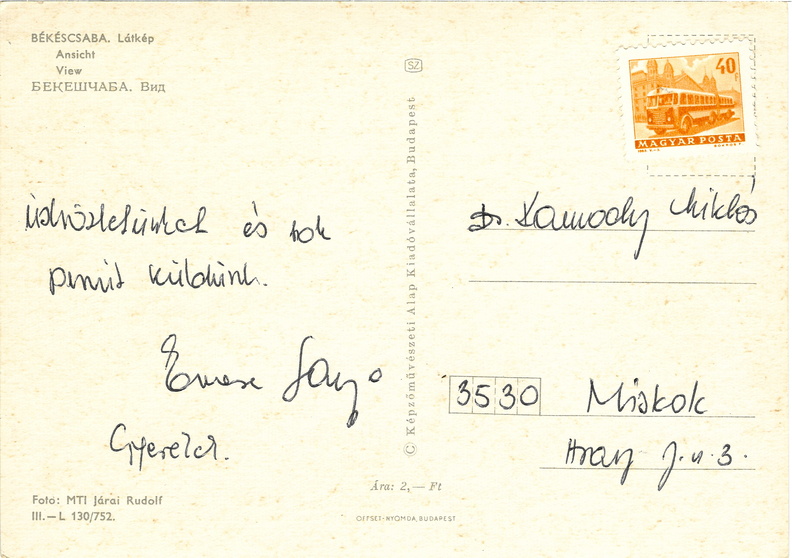 BÉKÉSCSABA. Látkép
Ansicht
View
БЕКЕШЧАБА. Вид
üdvözletünket és sok
puszit küldünk.
Emese
Gyerekek.
Foto: MTI Járai Rudolf
III.—L 130/752.
SZ
© Képzőművészeti Alap Kiadóvállalata, Budapest
Ára: 2,— Ft
OFFSET-NYOMDA, BUDAPEST
40
MAGYAR POSTA
Dr. Kamody Miklós
3530 Miskolc
J. u. 3.